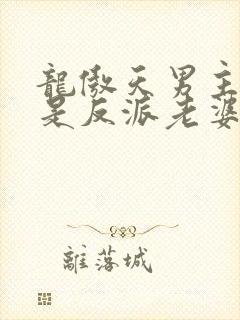 龍傲天男主
是反派老婆
離落城